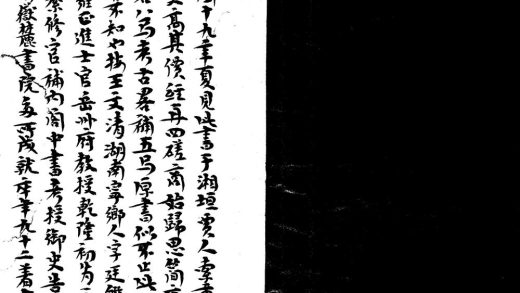 十九年夏見此書于湘垣賈人索
高其價經再四磋商始歸思簡
八 考古畧補五 原書似不止此
不知也按王文清湖南寧鄉人字廷
雍正進士官岳州府教授乾隆初為
纂修官補內閣中書考授御史告
嶽麓書院多所成就卒年九十二著